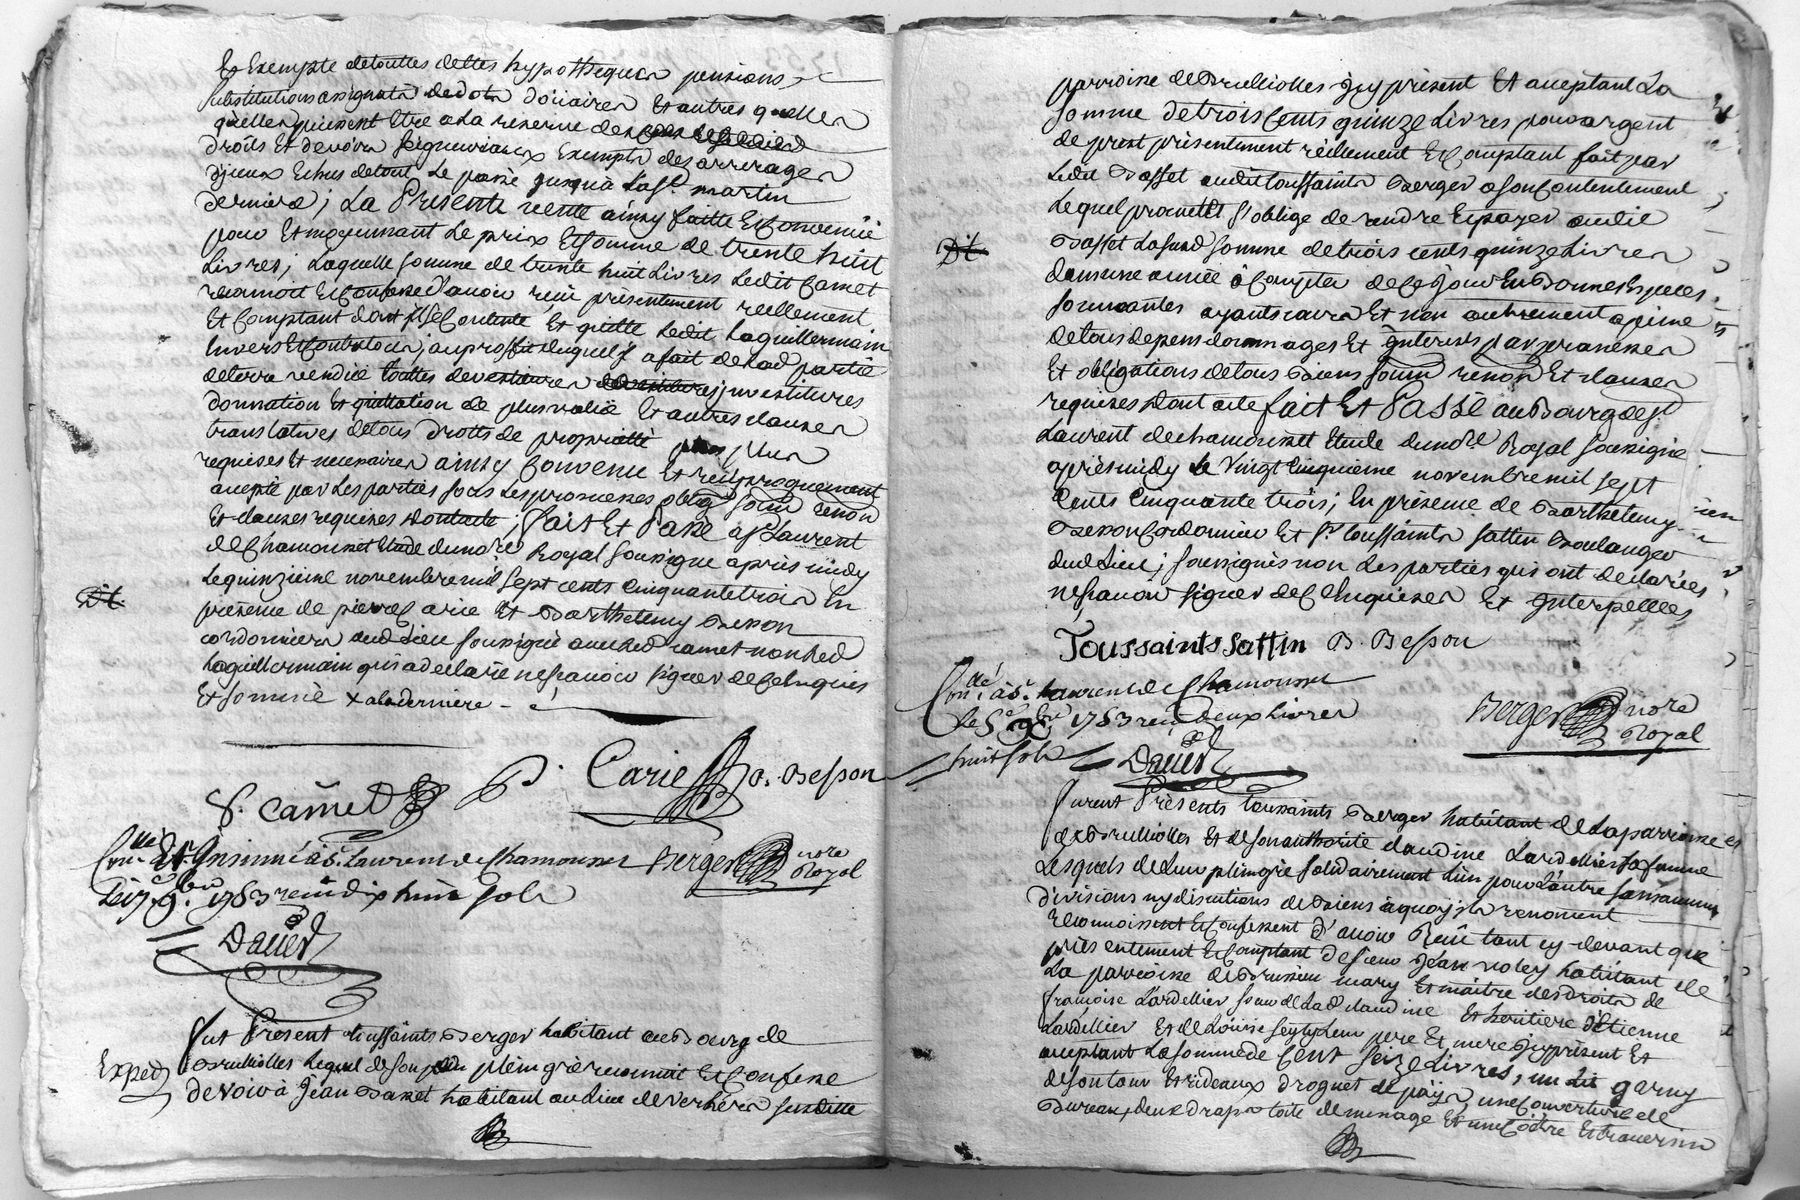 Et Exempte detouttes dettes hypothequer pensions
substitutions assignats dedots doüaires Et autres quelles
quelles puissent Etre a la reserve des
droits Et devoirs seigneuriaux Exempts des arrerages
d'jceux Echus detout Le passé jusqu'à La st martin
derniere; La Presente vente ainsy faitte Et Convenüe
pour Et moyennant Le prix Et somme de trente huit
Livres; Laquelle somme de trente huit Livres Ledit Camet
reconnoit Et Confesse d'avoir reçu présentement reellement
Et Comptant dont jl se Contente Et quitte Ledit Laguillermain
Envers Et Contre tous; au proffit duquel jl a fait de lad partie
deterre vendüe touttes devestitures jnvestitures
donnation Et quittation de plus value Et autres clauses
translatives detous droits de proprietté plus
requises Et necessaires ainsy Convenu Et reciproquement
accepté par Les parties sous Les promesses oblig soum renon
Et clauses requises Dont acte; fait Et Passé a St Laurent
de Chamousset Etude du notre Royal soussigné après midy
Le quinzieme novembre mil sept cents cinquante trois En
Dit
présence de pierre Carie Et Barthelemy Besson
cordonniers aud Lieu soussignés avec led Camet non led
Laguillermain qui a declaré ne sçavoir signer de ce Enquis
Et sommé x a la derniere
P. Camet P. Carie B. Besson
Conllé Et Insinué à St Laurent de Chamousset Berger nore Royal
Le 17e 9bre 1753 reçu dix huit sols
Daver
fut Présent toussaints Berger habitant au Bourg de
Exped
Brullioles Lequel de son plein gré reconnoit Et Confesse
devoir à Jean Basset habitant au lieu de Verchery susditte
parroisse de Brullioles jcy présent Et acceptant La
somme de trois Cents quinze Livres pour argent
de prest présentement réellement Et Comptant fait par
Ledit Basset audit toussaints Berger a son Contentement
Lequel promet Et s'oblige de rendre Et payer audit
Dit
Basset La susd somme de trois cents quinze Livres
dans une année à Compter de Ce jour En Bonnes Espèces
sonnantes ayants cours Et non autrement a peine
de tous depens dommages Et jnterests par promesses
Et obligations de tous Biens soum renon Et clauses
requises Dont acte fait Et Passé au Bourg de St
Laurent de chamousset Etude du notre Royal soussigné
après midy Le Vingt Cinquieme novembre mil sept
Cents Cinquante trois; En présence de Barthelemy
Besson Cordonnier Et Sr toussaints sattin Boulanger
dud Lieu; soussignés non Les parties qui ont declarées
ne sçavoir signer de Ce Enquises Et jnterpellées
Toussaints Sattin B. Besson
Conllé à St Laurent de Chamousset
Le 9bre 1753 reçu deux Livres Berger nore Royal
huit sols Daver
furent Présents toussaints Berger habitant de La parroisse
de Brullioles Et de son authorité claudine Lardellier sa femme
Lesquels de Leur plein gré solidairement L'un pour L'autre sans aucunes
divisions ny discutions de Biens à quoy jls renoncent
reconnoissent Et Confessent d'avoir Reçu tant cy-devant que
présentement Et Comptant de sieur Jean noley habitant de
La parroisse de Brussieu mary Et maitre des droits de
françoise Lardellier sœur de La d claudine Et heritiere d'Etienne
Lardellier Et de Louise Leurs pere Et mere jcy présent Et
acceptant La somme de Cent seize Livres, un Lit garny
de son tour Et rideaux droguet de pays, une Couverture de
Bureau, deux draps toile de menage Et une Et traversin